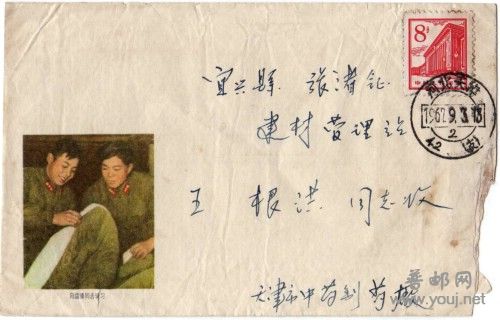 8分
河北天津
1967.9.3.13
2
42 (支)
宜兴縣 张渚鎮
建材管理站
王根洪 同志收
向雷锋同志学习
天津市中药制药厂
普邮网
www.youj.net